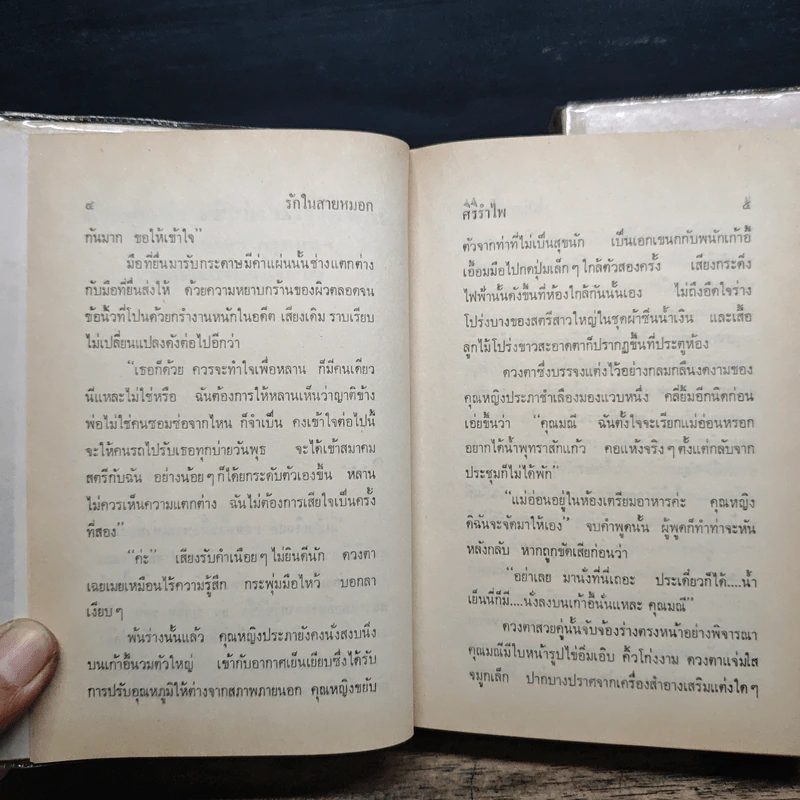 ๔ รักในสายหมอก
กันมาก ขอให้เข้าใจ”
มือที่ยื่นมารับกระดาษมีค่าแผ่นนั้นช่างแตกต่าง
กับมือที่ยื่นส่งให้ ด้วยความหยาบกร้านของผิวตลอดจน
ข้อนิ้วที่โปนด้วยกรำงานหนักในอดีต เสียงเดิม ราบเรียบ
ไม่เปลี่ยนแปลงดังต่อไปอีกว่า
“เธอก็ด้วย ควรจะทำใจเพื่อหลาน ก็มีคนเดียว
นี่แหละไม่ใช่หรือ ฉันต้องการให้หลานเห็นว่าญาติข้าง
พ่อไม่ใช่คนซอมซ่อจากไหน ก็จำเป็น คงเข้าใจต่อไปนี้
จะให้คนรถไปรับเธอทุกบ่ายวันพุธ จะได้เข้าสมาคม
สตรีกับฉัน อย่างน้อยๆ ก็ได้ยกระดับตัวเองขึ้น หลาน
ไม่ควรเห็นความแตกต่าง ฉันไม่ต้องการเสียใจเป็นครั้ง
ที่สอง”
“ค่ะ” เสียงรับคำเนือยๆ ไม่ยินดีนัก ดวงตา
เฉยเมยเหมือนไร้ความรู้สึก กระพุ่มมือไหว้ บอกลา
เงียบๆ
พ้นร่างนั้นแล้ว คุณหญิงประภายังคงนั่งสงบนิ่ง
บนเก้าอี้นวมตัวใหญ่ เข้ากับอากาศเย็นเยียบซึ่งได้รับ
การปรับอุณหภูมิให้ต่างจากสภาพภายนอก คุณหญิงขยับ
ศิริรำไพ ๕
ตัวจากท่าที่ไม่เป็นสุขนัก เป็นเอกเขนกกับพนักเก้าอี้
เอื้อมมือไปกดปุ่มเล็กๆ ใกล้ตัวสองครั้ง เสียงกระดิ่ง
ไฟฟ้านั้นดังขึ้นที่ห้องใกล้กันนั้นเอง ไม่ถึงอึดใจร่าง
โปร่งบางของสตรีสาวใหญ่ในชุดผ้าซิ่นน้ำเงิน และเสื้อ
ลูกไม้โปร่งขาวสะอาดตาก็ปรากฏขึ้นที่ประตูห้อง
ดวงตาซึ่งบรรจงแต่งไว้อย่างกลมกลืนงดงามของ
คุณหญิงประภาชำเลืองมองแวบหนึ่ง คลี่ยิ้มอีกนิดก่อน
เอ่ยขึ้นว่า “คุณมณี ฉันตั้งใจจะเรียกแม่อ่อนหรอก
อยากได้น้ำพุทราสักแก้ว คอแห้งจริงๆ ตั้งแต่กลับจาก
ประชุมก็ไม่ได้พัก”
“แม่อ่อนอยู่ในห้องเตรียมอาหารค่ะ คุณหญิง
ดิฉันจะจัดมาให้เอง” จบคำพูดนั้น ผู้พูดก็ทำท่าจะหัน
หลังกลับ หากถูกขัดเสียก่อนว่า
“อย่าเลย มานั่งที่นี่เถอะ ประเดี๋ยวก็ได้....น้ำ
เย็นนี่ก็มี....นั่งลงบนเก้าอี้นั่นแหละ คุณมณี”
ดวงตาสวยคู่นั้นจับจ้องร่างตรงหน้าอย่างพิจารณา
คุณมณีมีใบหน้ารูปไข่อิ่มเอิบ คิ้วโก่งงาม ดวงตาแจ่มใส
จมูกเล็ก ปากบางปราศจากเครื่องสำอางเสริมแต่งใดๆ